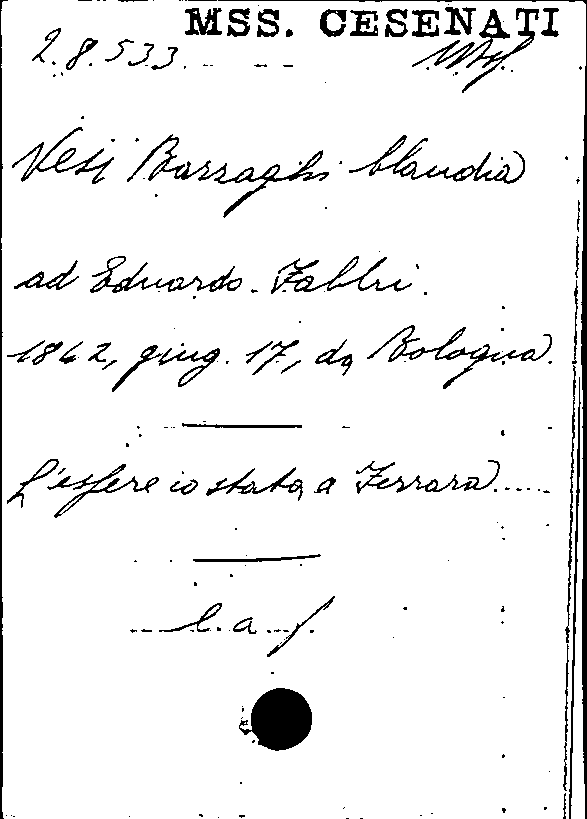 MSS. CESENATI
2.8.533.
Vesi Barzaghi Claudia
ad Eduardo Fabbri.
1842, giug. 17, da Bologna.
L'essere io stata a Ferrara.....
l. a. f.